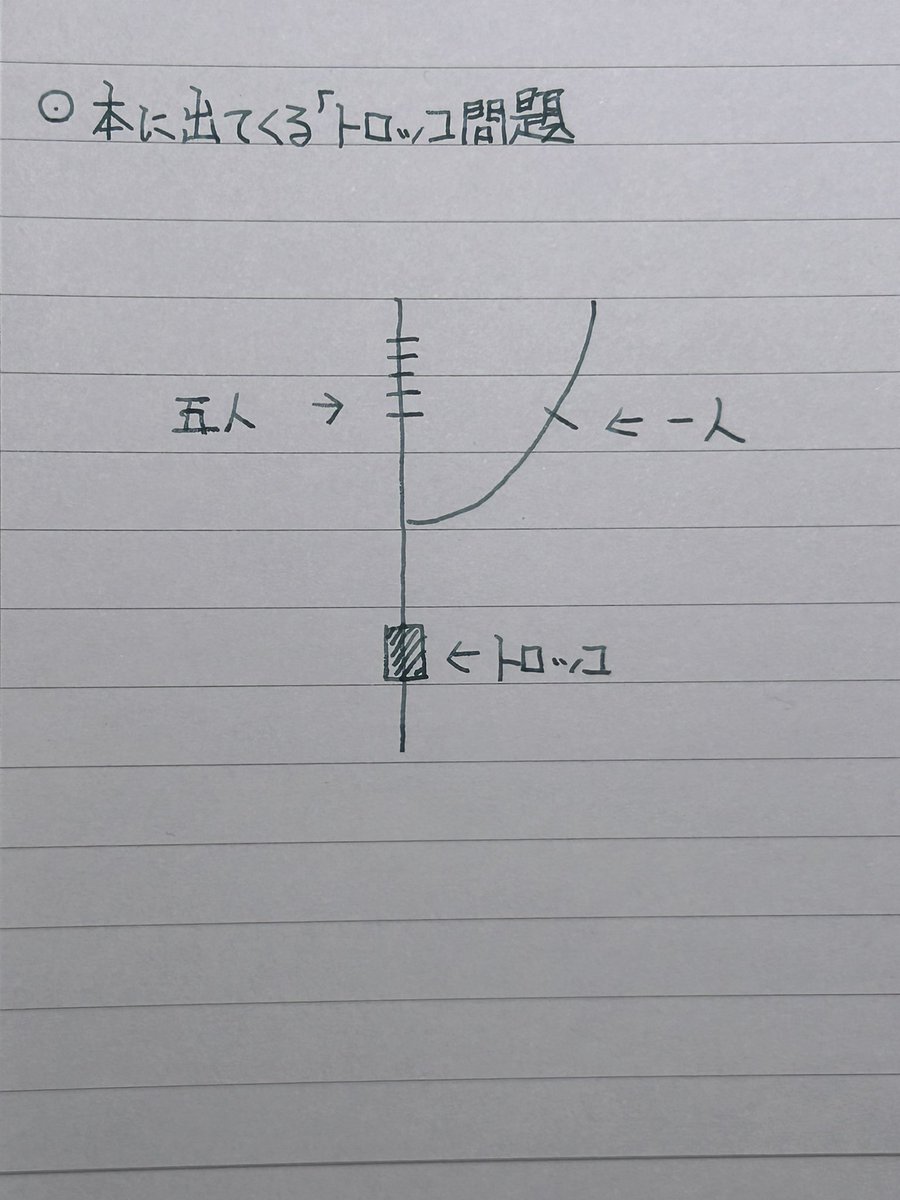 ⊙ 本に出てくる「トロッコ問題
五人 →
← 一人
← トロッコ